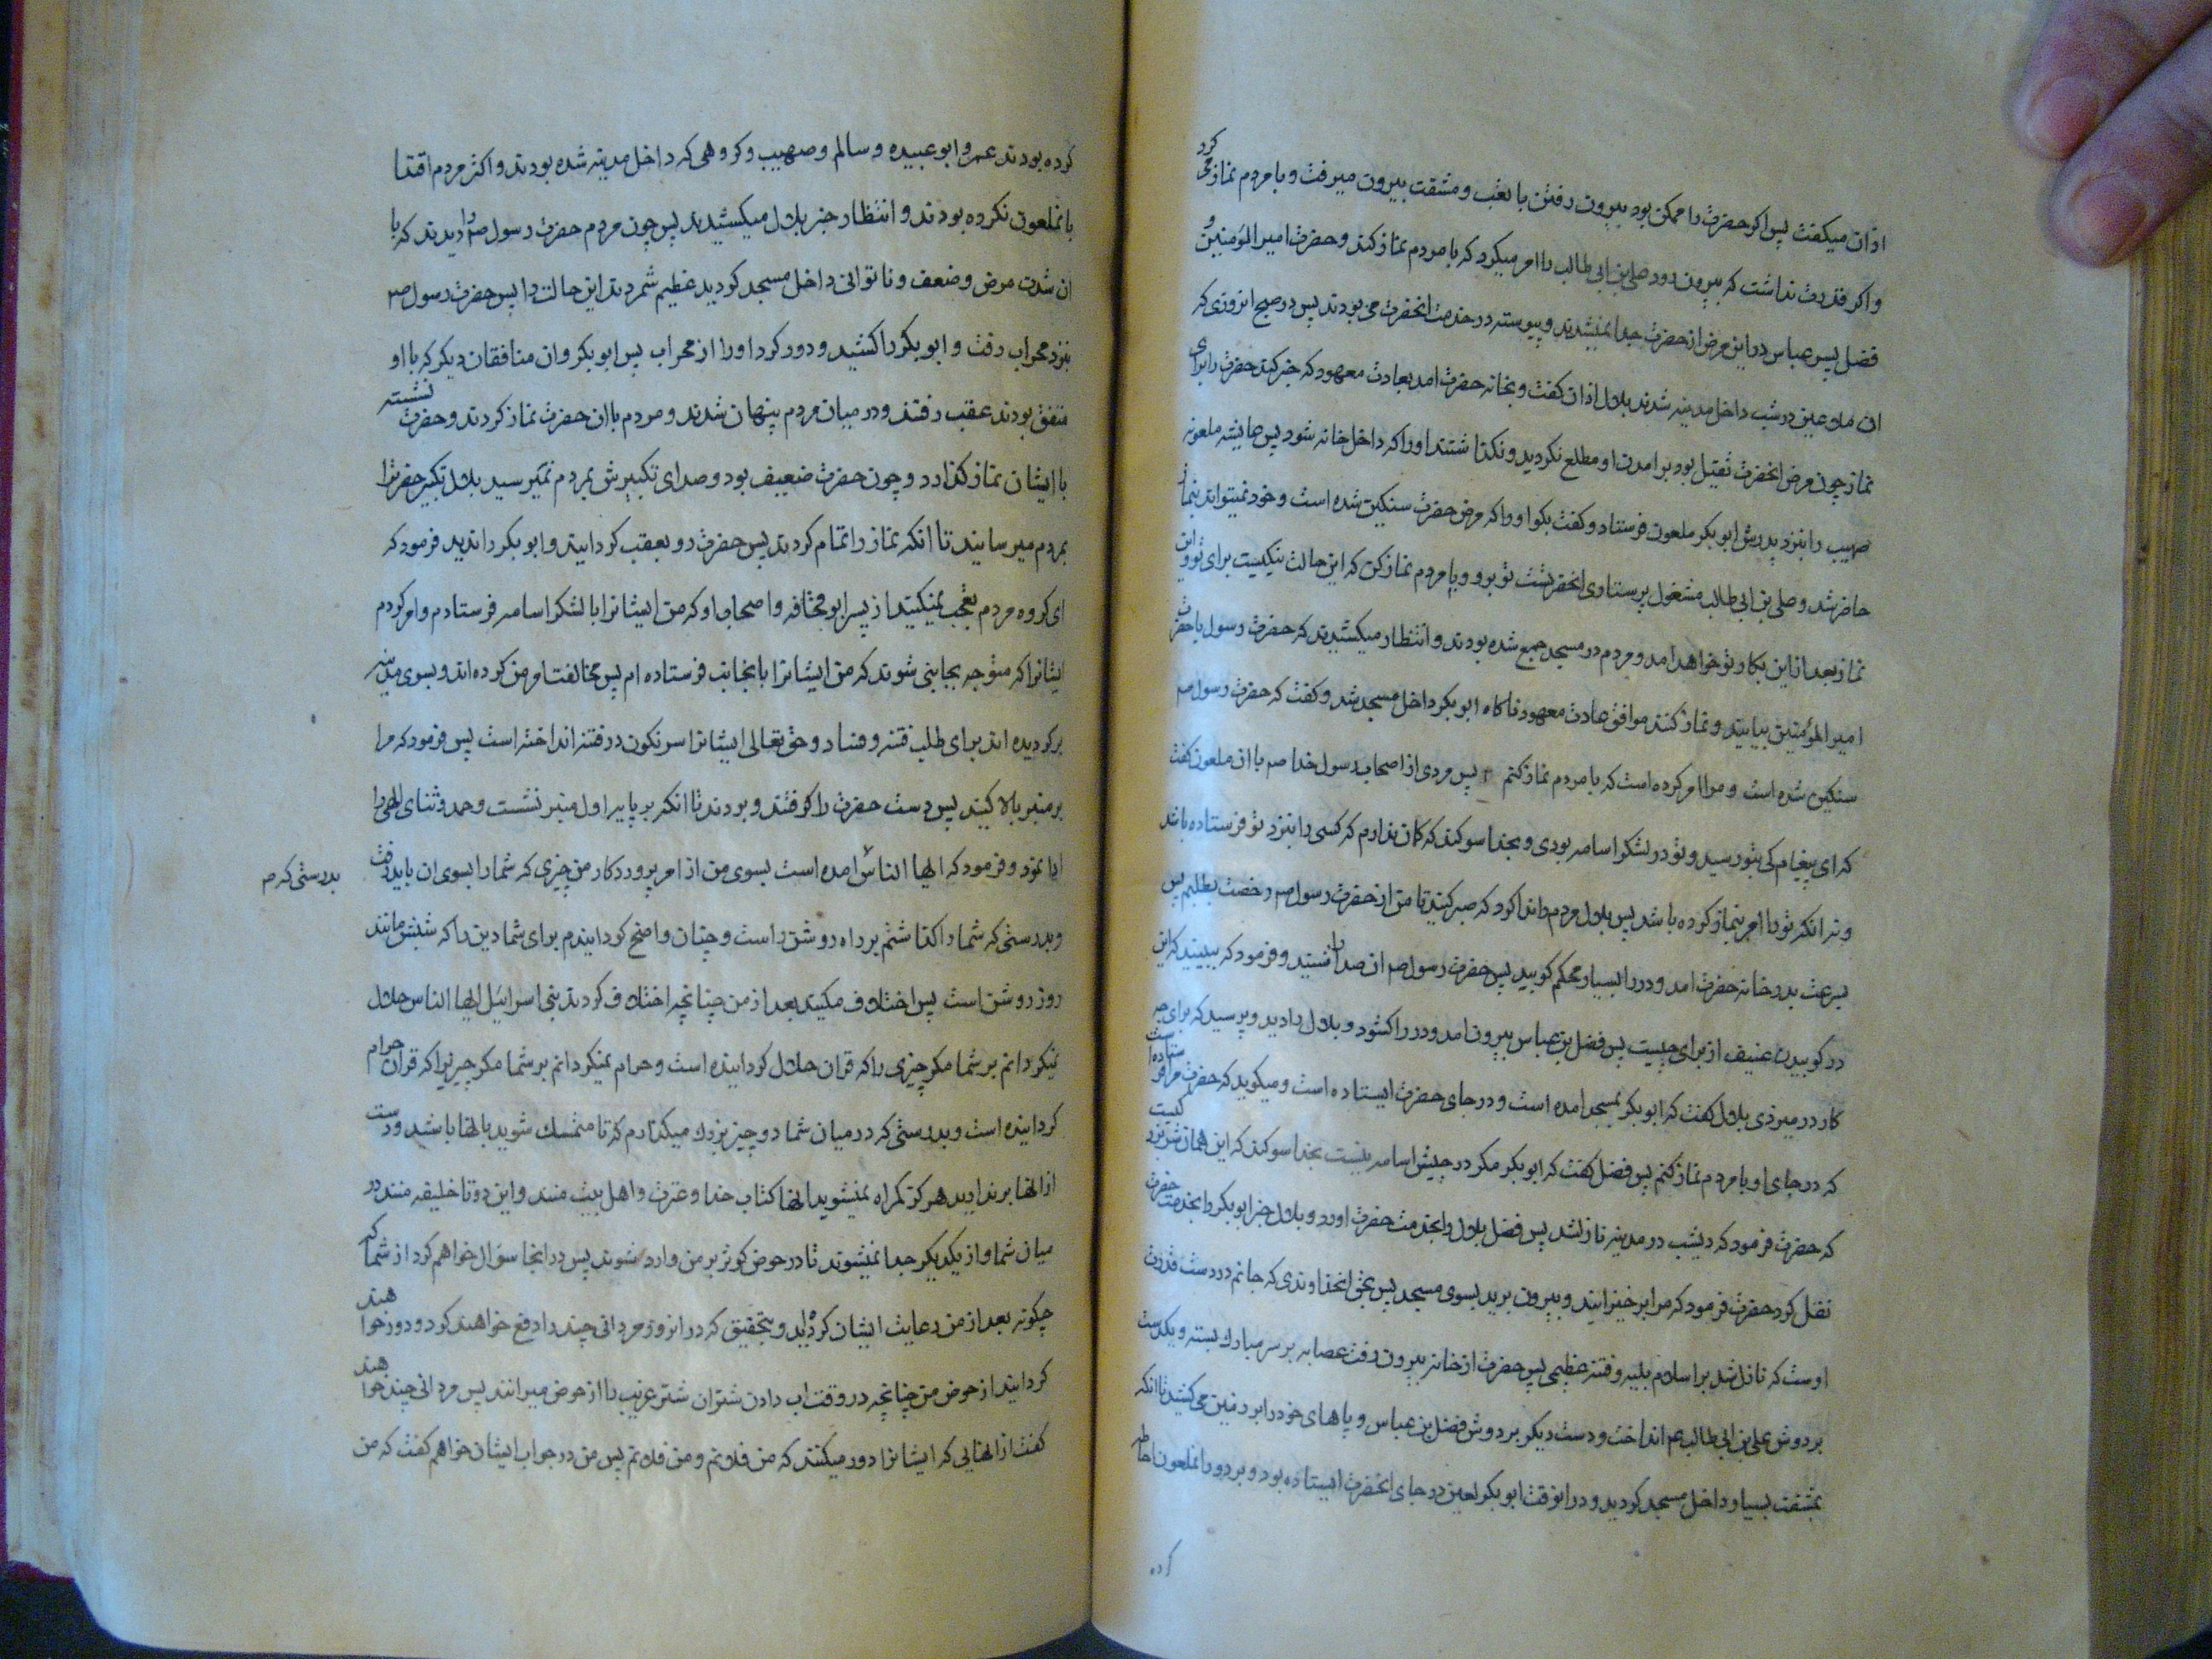 اذان میکفت پس اکر حضرت را ممکن بود بیرون رفتن با تعب و مشقت بیرون میرفت و با مردم نماز می کرد
و اکر قدرت نداشت که بیرون رود علی بن ابی طالب را امر میکرد که با مردم نماز کند و حضرت امیر المؤمنین و
فضل پسر عباس در این مرض از حضرت جدا نمیشدند و پیوسته در خدمت انحضرت می بودند پس در صبح انروزی که
ان ملاعین در شب داخل مدینه شدند بلال اذان کفت و بخانه حضرت امد بعادت معهود که خبر کند حضرت را برای
نماز چون مرض انحضرت ثقیل بود بر امدن او مطلع نکردید و نکذاشتند او را که داخل خانه شود پس عایشه ملعونه
صهیب را بنزد پدرش ابو بکر ملعون فرستاد و کفت بکو او را که مرض حضرت سنکین شده است و خود نمیتواند بنماز
حاضر شد و علی بن ابی طالب مشغول پرستاری انحضرتست تو برو و با مردم نماز کن که این حالت نیکیست برای تو و این
نماز بعد از این بکار تو خواهد امد و مردم در مسجد جمع شده بودند و انتظار میکشیدند که حضرت رسول یا حضرت
امیر المؤمنین بیایند و نماز کنند موافق عادت معهود ناکاه ابو بکر داخل مسجد شد و کفت که حضرت رسول صم
سنکین شده است و مرا امر کرده است که با مردم نماز کنم پس مردی از اصحاب رسول خدا صم با ان ملعون کفت
که ای پیغام کی بتو رسید و تو در لشکر اسامه بودی و بخدا سوکند که کمان ندارم که کسی را بنزد تو فرستاده باشد
و نه انکه تو را امر بنماز کرده باشد پس بلال مردم را ندا کرد که صبر کنید تا من از حضرت رسول صم رخصت بطلبم پس
بسرعت بدر خانه حضرت امد و در را بسیار محکم کوبید پس حضرت رسول صم ان صدا را شنید و فرمود که ببینید که این
در کوبیدن عنیف از برای چیست پس فضل بن عباس بیرون امد و در را کشود و بلال را دید و پرسید که برای چه
کار در میزنی بلال کفت که ابو بکر بمسجد امده است و در جای حضرت ایستاده است و میکوید که حضرت مرا فرستاده است
که در جای او با مردم نماز کنم پس فضل کفت که ابو بکر مکر در جیش اسامه نیست بخدا سوکند که این همان شر بزرکیست
که حضرت فرمود که دیشب در مدینه نازل شد پس فضل بلال را بخدمت حضرت اورد و بلال خبر ابو بکر را بخدمت حضرت
نقل کرد حضرت فرمود که مرا بر خیزانید و بیرون برید بسوی مسجد پس بحق انخداوندی که جانم در دست قدرت
اوست که نازل شد بر اسلام بلیه و فتنه عظیمی پس حضرت از خانه بیرون رفت عصابه بر سر مبارک بسته و یکدست
بر دوش علی بن ابی طالب عم انداخت و دست دیکر بر دوش فضل بن عباس و پاهای خود را بر زمین می کشید تا انکه
بمشقت بسیار داخل مسجد کردید و در انوقت ابو بکر لعین در جای انحضرت ایستاده بود و بر دور انملعون احاطه
کرده
کرده بودند عمر و ابو عبیده و سالم و صهیب و کروهی که داخل مدینه شده بودند و اکثر مردم اقتدا
بانملعون نکرده بودند و انتظار خبر بلال میکشیدند پس چون مردم حضرت رسول صم را دیدند که با
ان شدت مرض و ضعف و ناتوانی داخل مسجد کردید عظیم شمردند این حالت را پس حضرت رسول صم
بنزد محراب رفت و ابو بکر را کشید و دور کرد او را از محراب پس ابو بکر و ان منافقان دیکر که با او
متفق بودند عقب رفتند و در میان مردم پنهان شدند و مردم با ان حضرت نماز کردند و حضرت نشسته
با ایشان نماز کذارد و چون حضرت ضعیف بود و صدای تکبیرش بمردم نمیرسید بلال تکبیر حضرت را
بمردم میرسانید تا انکه نماز را تمام کردند پس حضرت رو بعقب کردانید و ابو بکر را ندید فرمود که
ای کروه مردم تعجب نمیکنید از پسر ابو قحافه و اصحاب او که من ایشانرا با لشکر اسامه فرستادم و امر کردم
ایشانرا که متوجه بجانبی شوند که من ایشانرا بانجانب فرستاده ام پس مخالفت امر من کرده اند و بسوی مدینه
بر کردیده اند برای طلب فتنه و فساد و حق تعالی ایشانرا سرنکون در فتنه انداخته است پس فرمود که مرا
بر منبر بالا کنید پس دست حضرت را کرفتند و بردند تا انکه بر پایه اول منبر نشست و حمد و ثنای الهی را
ادا نمود و فرمود که ایها الناس امده است بسوی من از امر پروردکار من چیزی که شما را بسوی ان باید رفت
بدرستی که صم
و بدرستی که شما را کذاشتم بر راه روشن راست و چنان واضح کردانیدم برای شما دین را که شبش مانند
روز روشن است پس اختلاف مکنید بعد از من چنانچه اختلاف کردند بنی اسرائیل ایها الناس حلال
نمیکردانم بر شما مکر چیزی را که قران حلال کردانیده است و حرام نمیکردانم بر شما مکر چیزیرا که قران حرام
کردانیده است و بدرستی که در میان شما دو چیز بزرک میکذارم که تا متمسک شوید بانها باشید و دست
از انها بر ندارید هرکز کمراه نمیشوید انها کتاب خدا و عترت و اهل بیت منند و این دو تا خلیفه منند در
میان شما و از یکدیکر جدا نمیشوند تا در حوض کوثر بر من وارد شوند پس در انجا سؤال خواهم کرد از شما که
چکونه بعد از من رعایت ایشان کرده اید و بتحقیق که در انروز مردانی چند را دفع خواهند کرد و دور خواهند
کردانید از حوض من چنانچه در وقت اب دادن شتران شتر غریب را از حوض میرانند پس مردانی چند خواهند
کفت از انهایی که ایشانرا دور میکنند که من فلانم و من فلانم پس من در جواب ایشان خواهم کفت که من